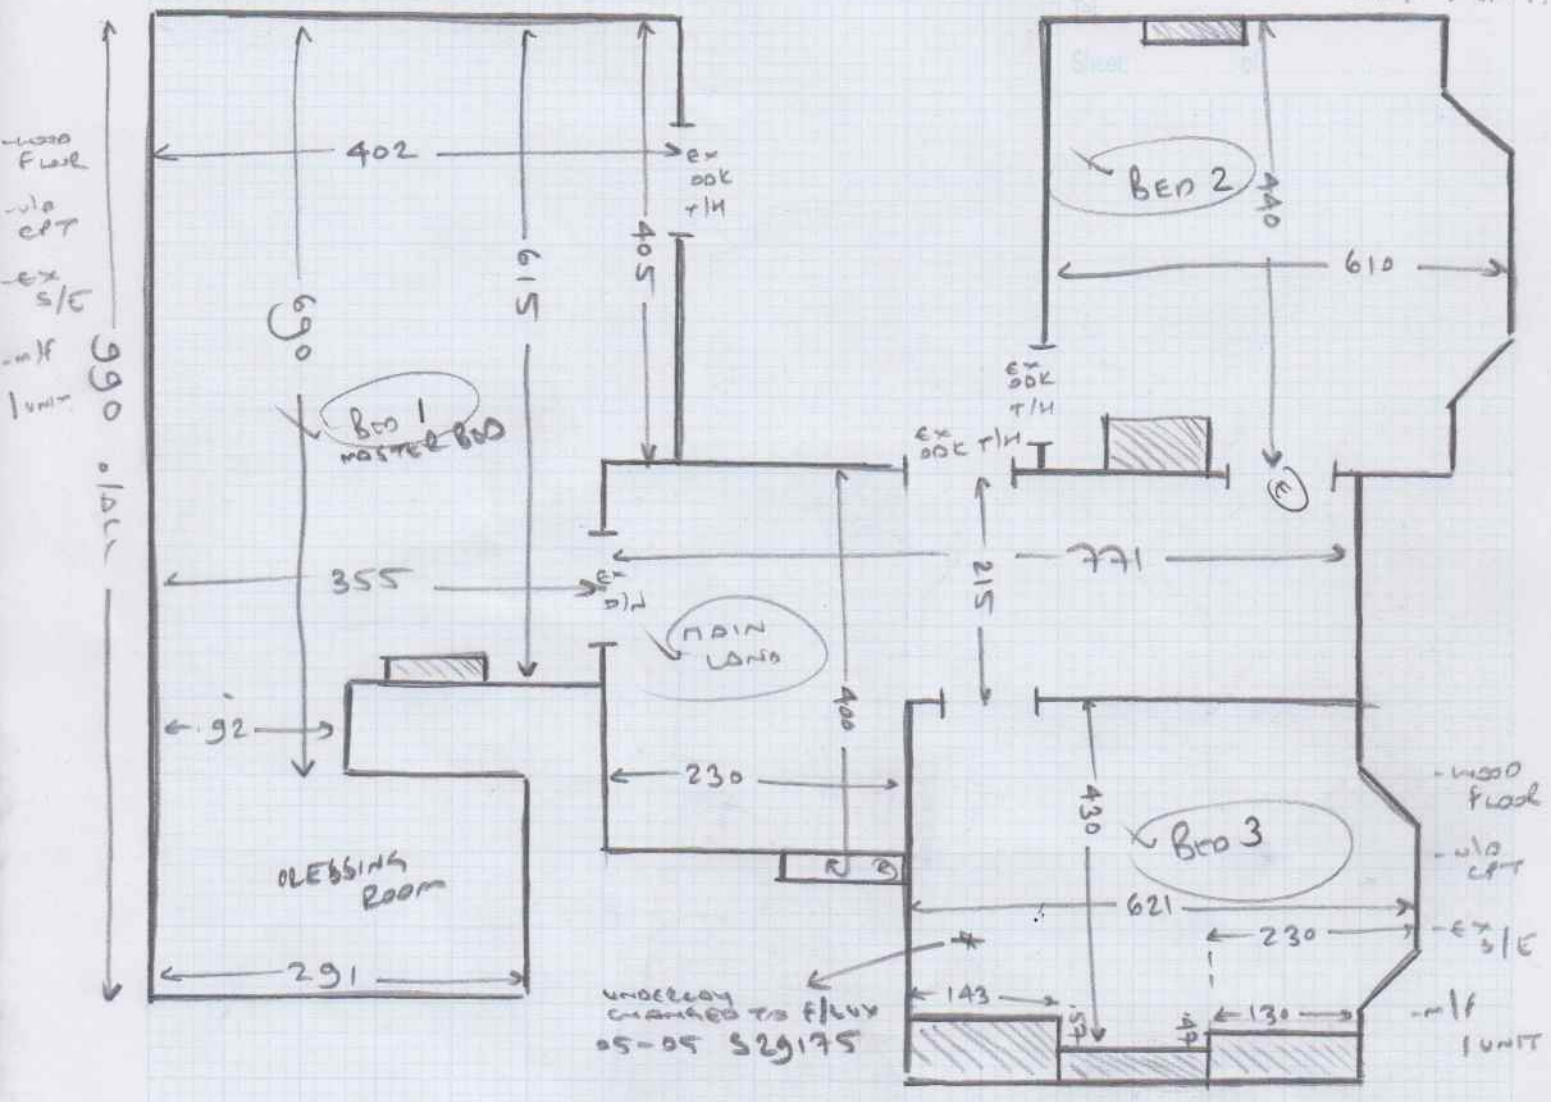 Sheet of
-WOOD
FLOOR
-U/D
CPT
-EX
S/E
-M/F
1 UNIT
990 O/ALL
402
690
615
405
EX
OOK
T/H
BED 1
MASTER BED
355
EX
D/N
92
DRESSING
ROOM
291
BED 2
440
610
EX
OOK
T/H
EX
OOK T/H
E
771
215
MAIN
LAND
400
230
BED 3
430
621
230
143
57
47
130
*
UNDERLAY
CHANGED TO F/LUX
05-05 S29175
-WOOD
FLOOR
-U/D
CPT
-EX
S/E
-M/F
1 UNIT